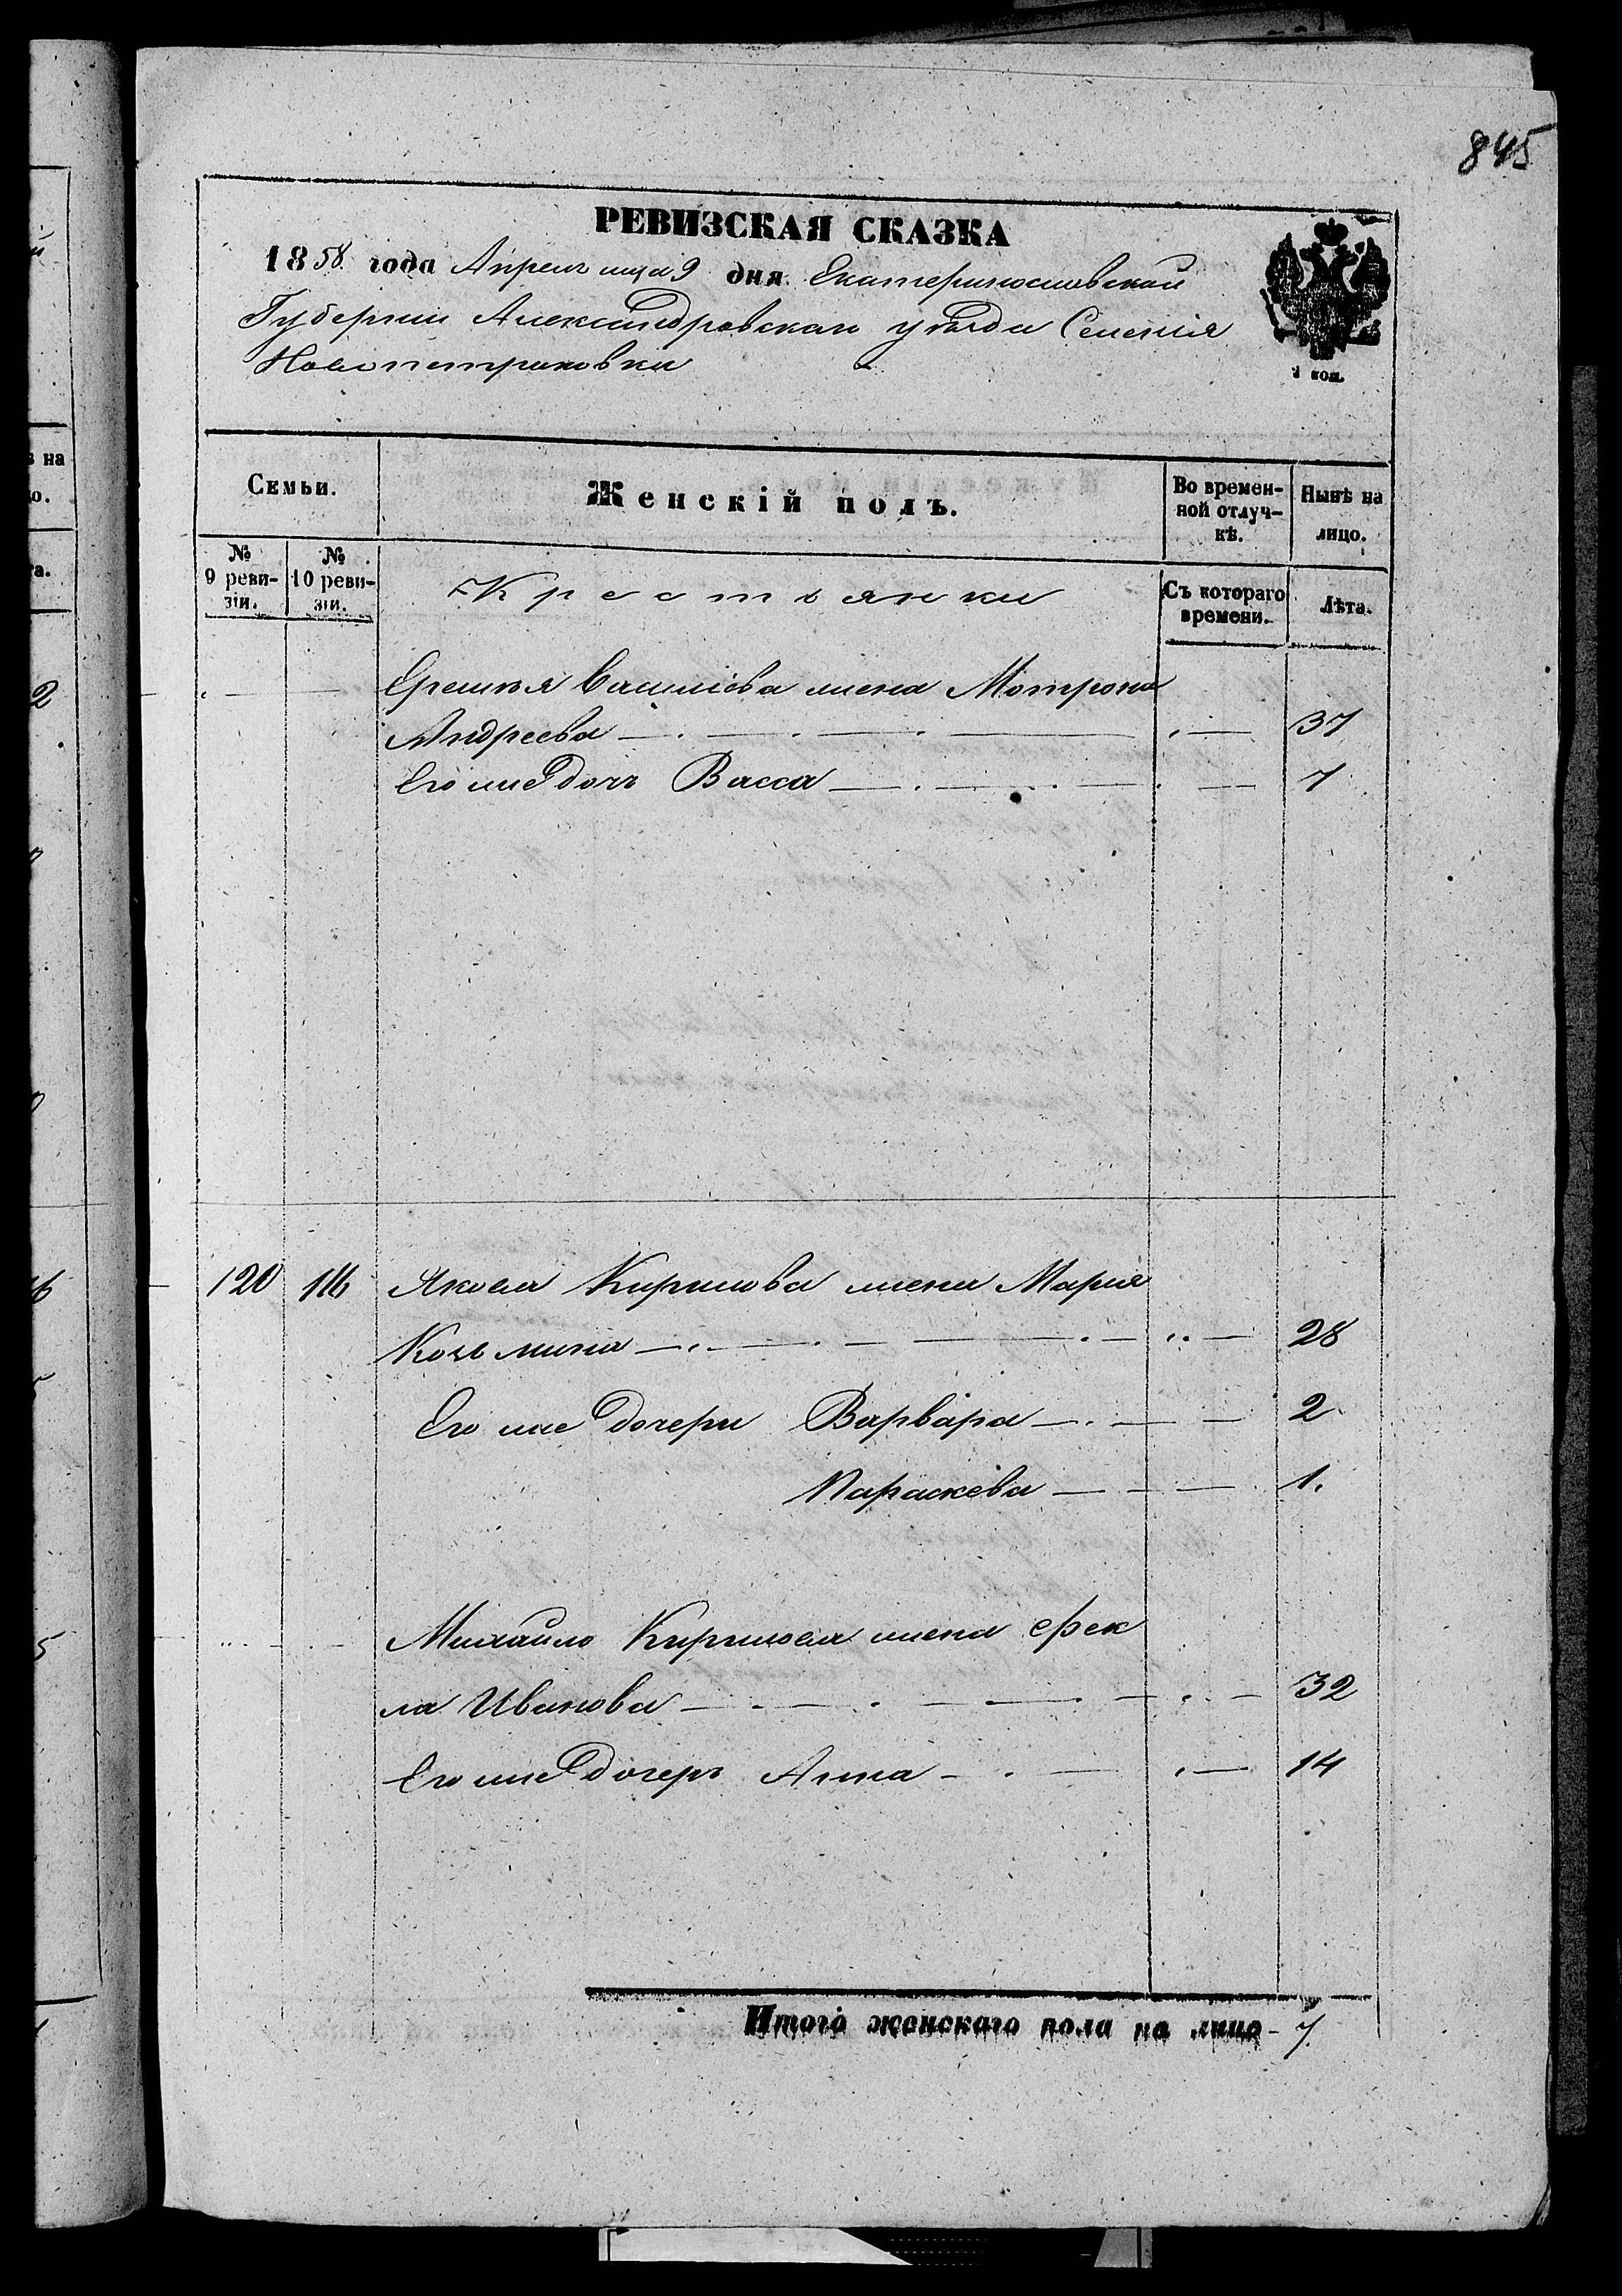 845
РЕВИЗСКАЯ СКАЗКА
1858 года Апреля мца 9 дня Екатеринославской
Губернии Александровскаго уѣзда Селенія
Новопетриковки
2 коп.
Семьи.
Женскій полъ.
Во времен-
ной отлуч-
кѣ.
Нынѣ на
лицо.
№
9 реви-
зіи.
№
10 реви-
зіи.
Крестьянки
Съ котораго
времени.
Лѣта.
Василіева жена Мотрона
Андреева 37
Его же дочь Васса 7
120 116 Якова Кирилова жена Марія
Козьмина 28
Его же дочери Варвара 2
Параскева 1.
Михайло Кирилова жена Фек
ла Иванова 32
Его же дочерь Анна 14
Итого женскаго пола на лицо 7.